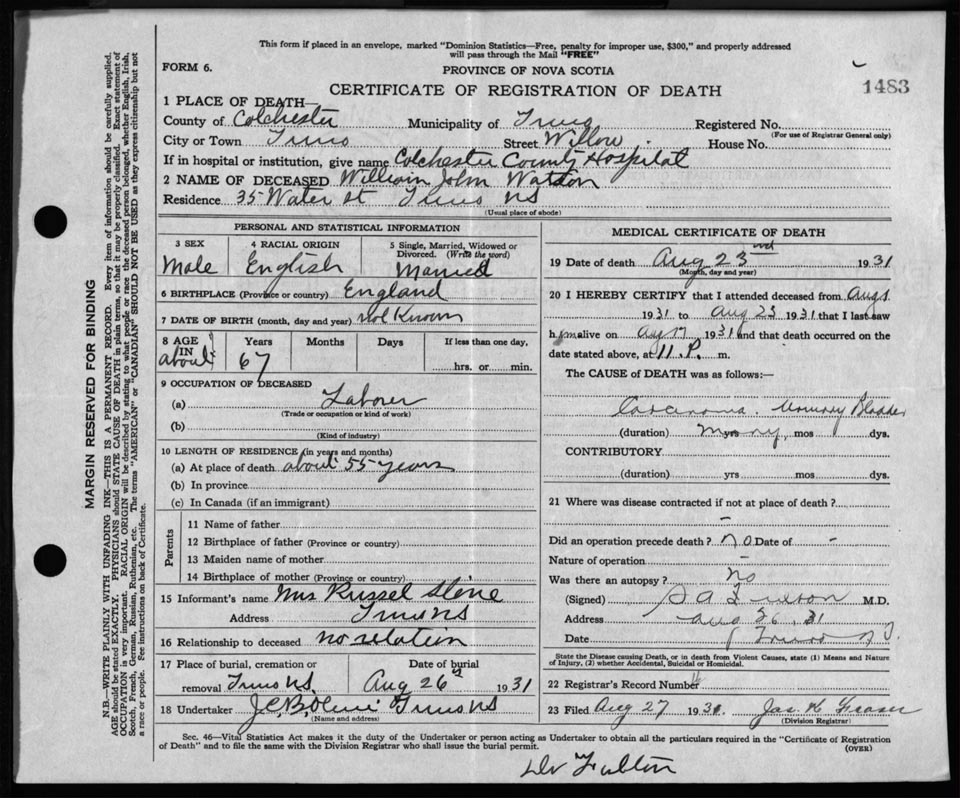 This form if placed in an envelope, marked "Dominion Statistics—Free, penalty for improper use, $300," and properly addressed
will pass through the Mail "FREE"
FORM 6.
PROVINCE OF NOVA SCOTIA
CERTIFICATE OF REGISTRATION OF DEATH
1483
1 PLACE OF DEATH—
County of Colchester Municipality of Truro Registered No.
(For use of Registrar General only)
City or Town Truro Street Willow. House No.
If in hospital or institution, give name Colchester County Hospital
2 NAME OF DECEASED William John Watson
Residence 35 Water St Truro NS
(Usual place of abode)
PERSONAL AND STATISTICAL INFORMATION
3 SEX 4 RACIAL ORIGIN 5 Single, Married, Widowed or
Divorced. (Write the word)
Male English Married
6 BIRTHPLACE (Province or country) England
7 DATE OF BIRTH (month, day and year) not Known
8 AGE IN Years Months Days If less than one day,
about 67 hrs. or min.
9 OCCUPATION OF DECEASED
(a) Laborer
(Trade or occupation or kind of work)
(b)
(Kind of industry)
10 LENGTH OF RESIDENCE (in years and months)
(a) At place of death about 55 years
(b) In province
(c) In Canada (if an immigrant)
Parents
11 Name of father
12 Birthplace of father (Province or country)
13 Maiden name of mother
14 Birthplace of mother (Province or country)
15 Informant's name Mrs Russel
Address Truro NS
16 Relationship to deceased no relation
17 Place of burial, cremation or Date of burial
removal Truro NS. Aug 26th 1931
18 Undertaker Truro NS
(Name and address)
MEDICAL CERTIFICATE OF DEATH
19 Date of death Aug 23rd 1931
(Month, day and year)
20 I HEREBY CERTIFY that I attended deceased from Aug 1
1931 to Aug 23 1931 that I last saw
him alive on Aug 17 1931 and that death occurred on the
date stated above, at 11.P. m.
The CAUSE of DEATH was as follows:—
Carcinoma. Urinary Bladder
(duration) yrs many mos dys.
CONTRIBUTORY
(duration) yrs mos dys.
21 Where was disease contracted if not at place of death?
-
Did an operation precede death? no Date of -
Nature of operation
Was there an autopsy? no
(Signed) M.D.
Address Aug 26, 31
Date Truro N S.
State the Disease causing Death, or in death from Violent Causes, state (1) Means and Nature
of Injury, (2) whether Accidental, Suicidal or Homicidal.
22 Registrar's Record Number
23 Filed Aug 27 1931. Jas K Fraser
(Division Registrar)
Sec. 46—Vital Statistics Act makes it the duty of the Undertaker or person acting as Undertaker to obtain all the particulars required in the "Certificate of Registration
of Death" and to file the same with the Division Registrar who shall issue the burial permit. (OVER)
Dr Fulton
MARGIN RESERVED FOR BINDING
N.B.—WRITE PLAINLY WITH UNFADING INK—THIS IS A PERMANENT RECORD. Every item of information should be carefully supplied.
AGE should be stated EXACTLY. PHYSICIANS should STATE CAUSE OF DEATH in plain terms, so that it may be properly classified. Exact statement of
OCCUPATION is very important. RACIAL ORIGIN will be described by stating to what people or race the deceased person belonged, whether English, Irish,
Scotch, French, German, Russian, Ruthenian, etc. The terms "AMERICAN" or "CANADIAN" SHOULD NOT BE USED as they express citizenship but not
a race or people. See instructions on back of Certificate.